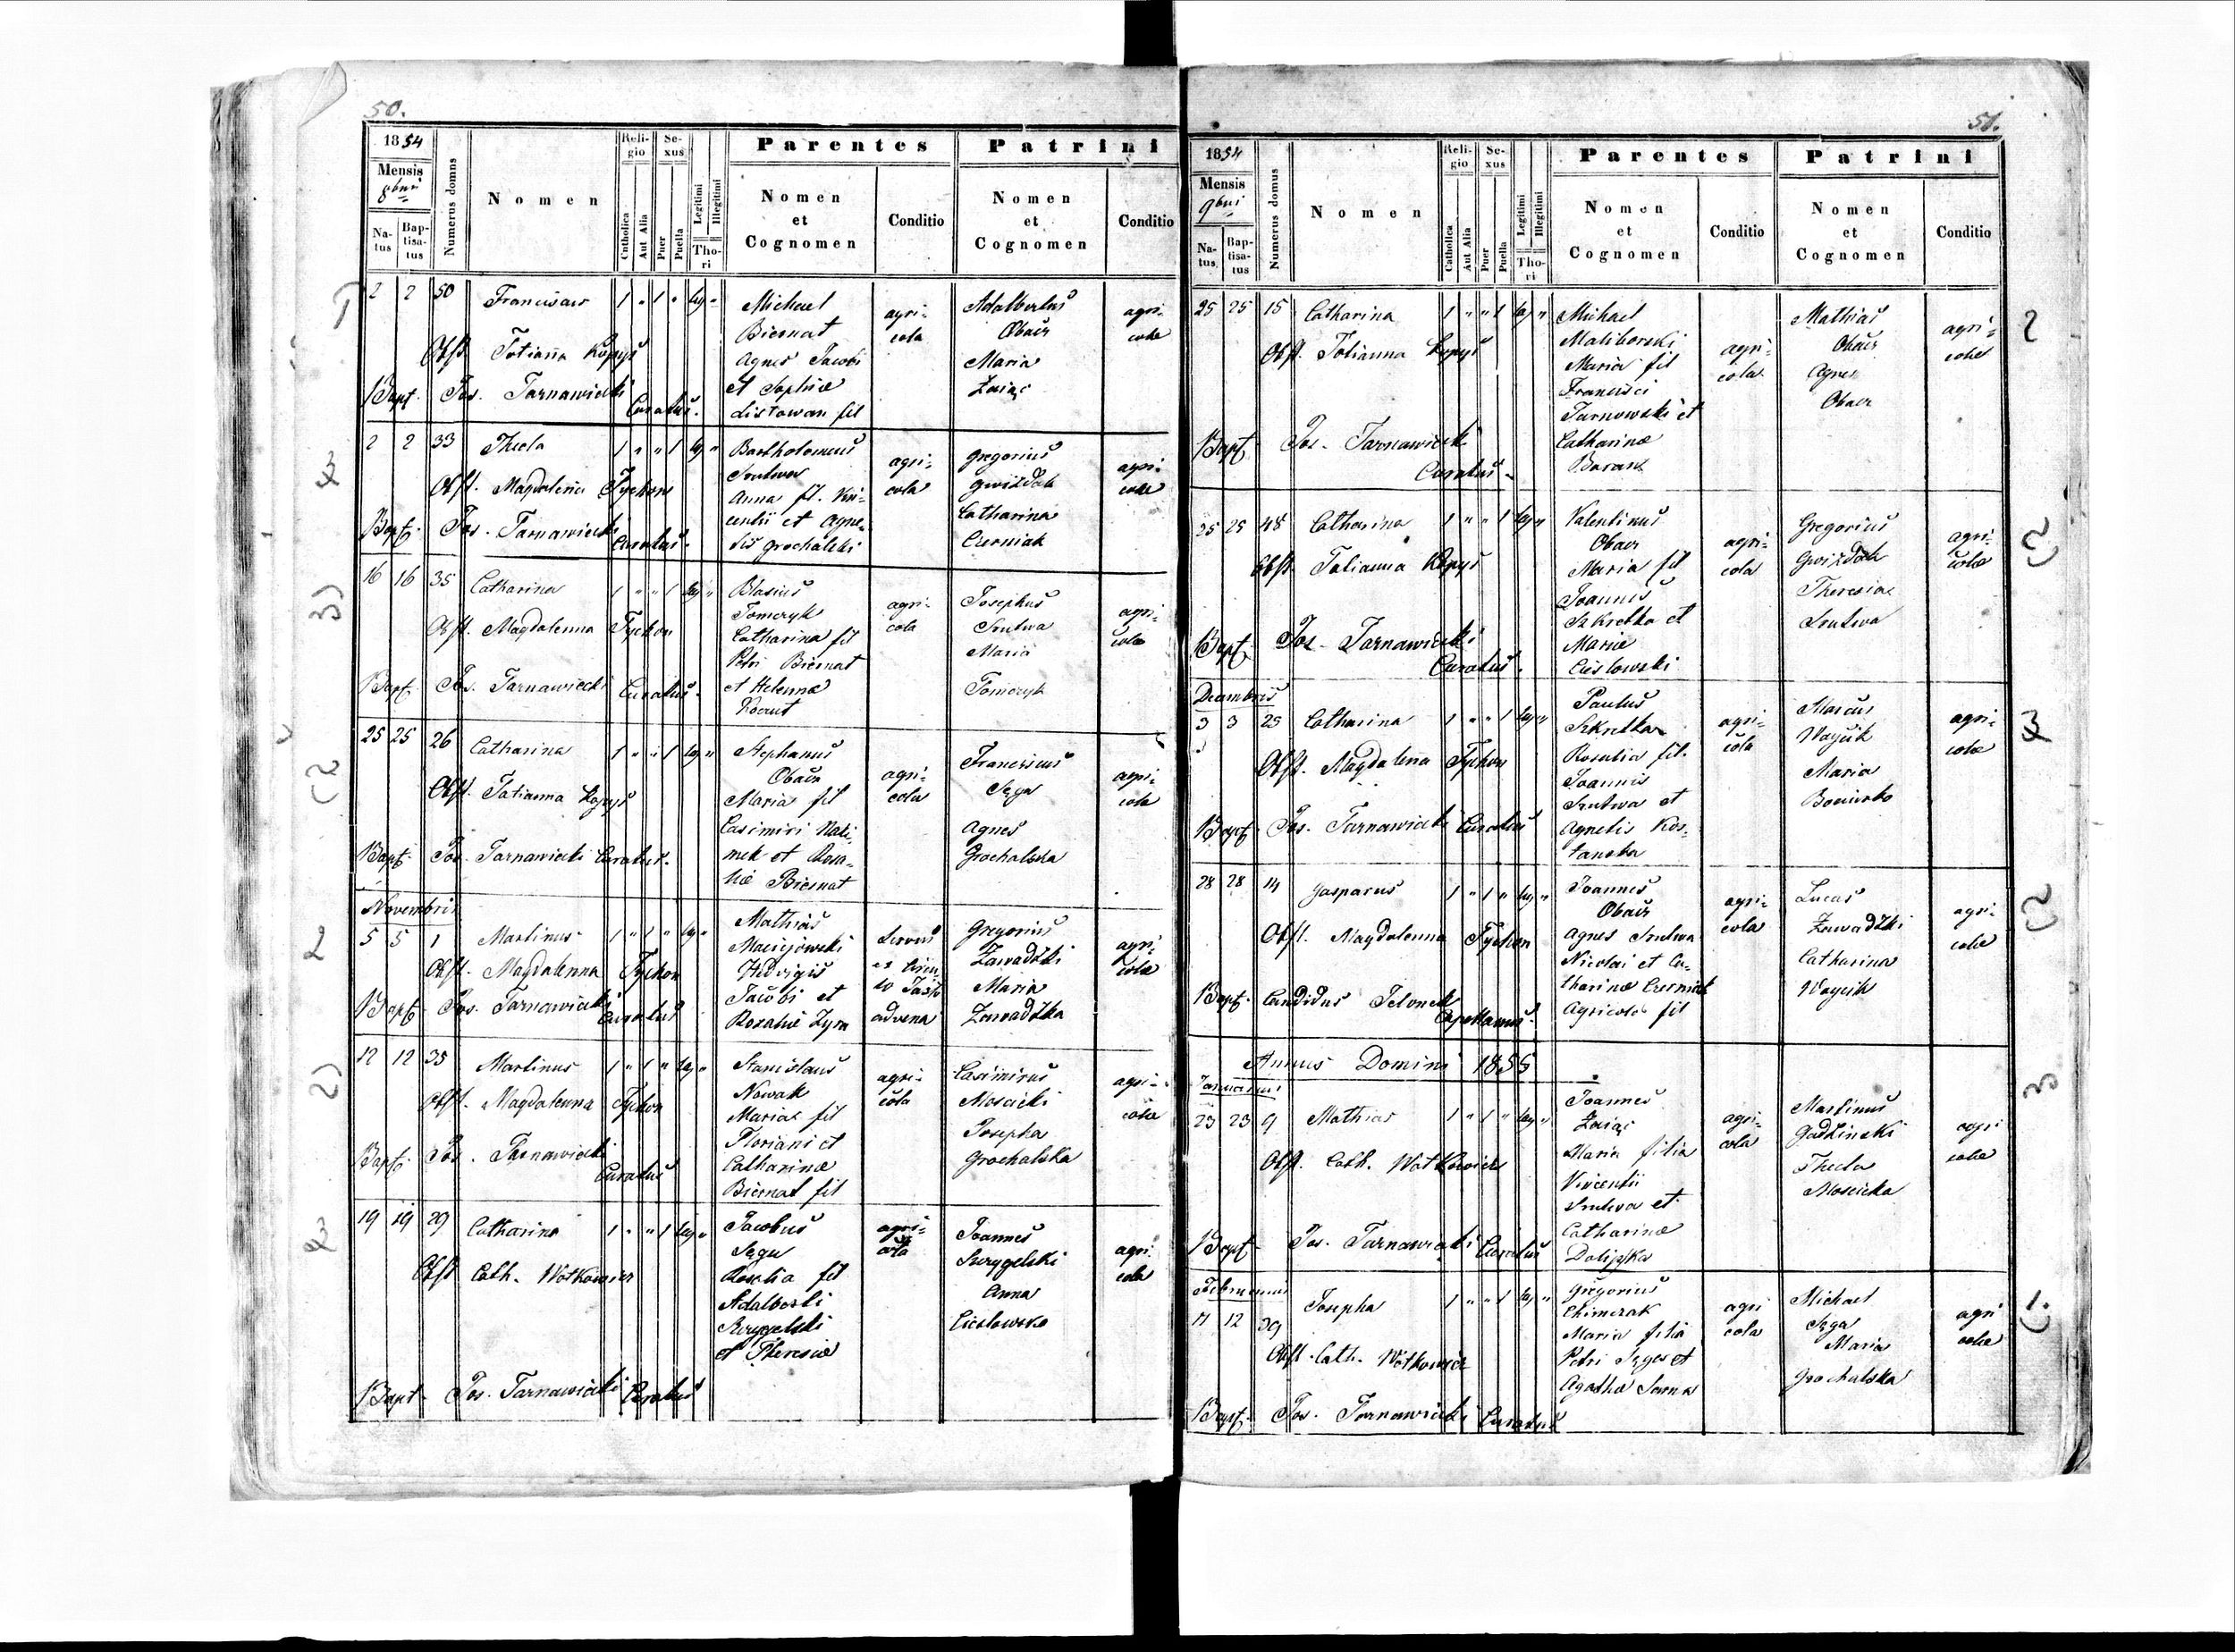 50.
1854
Mensis
8bris
Natus
Baptisatus
Numerus domus
Nomen
Religio
Catholica
Aut Alia
Sexus
Puer
Puella
Legitimi
Illegitimi
Thori
Parentes
Nomen
et
Cognomen
Conditio
Patrini
Nomen
et
Cognomen
Conditio
2 2 50 Franciscus 1 " 1 " leg "
Obst. Tatianna Kopyś
Bapt. Jos. Tarnawiecki Curatus.
Michael
Biernat
Agnes Jacobi
et Sophiæ
Listowan fil
agri-
cola
Adalbertus
Obacz
Maria
Zając
agri-
colæ
2 2 33 Thecla 1 " " 1 leg "
Obst. Magdalena Tychon
Bapt. Jos. Tarnawiecki Curatus.
Bartholomeus
Srutwa
Anna fil. Vin-
centii et Agne-
tis Grochalski
agri-
cola
Gregorius
Gwiżdak
Catharina
Czerniak
agri-
colæ
16 16 35 Catharina 1 " " 1 leg "
Obst. Magdalenna Tychon
Bapt. Jos. Tarnawiecki Curatus.
Blasius
Tomczyk
Catharina fil
Petri Biernat
et Helennæ
agri-
cola
Josephus
Srutwa
Maria
Tomczyk
agri-
colæ
25 25 26 Catharina 1 " " 1 leg "
Obst. Tatianna Kopyś
Bapt. Jos. Tarnawiecki Curatus.
Stephanus
Obacz
Maria fil
Casimiri Kali-
mek et Rosa-
liæ Biernat
agri-
cola
Franciscus
Sęga
Agnes
Grochalska
agri-
colæ
Novembris
5 5 1 Martinus 1 " 1 " leg "
Obst. Magdalenna Tychon
Bapt. Jos. Tarnawiecki Curatus
Mathias
Maciejowski
Hedvigis
Jacobi et
Rozaliæ Zyra
Servus
advena
Gregorius
Zawadzki
Maria
Zawadzka
agri-
colæ
12 12 35 Martinus 1 " 1 " leg "
Obst. Magdalenna Tychon
Bapt. Jos. Tarnawiecki Curatus
Stanislaus
Nowak
Maria fil
Floriani et
Catharinæ
Biernat fil
agri-
cola
Casimirus
Moscicki
Josepha
Grochalska
agri-
colæ
19 19 29 Catharina 1 " " 1 leg "
Obst Cath. Wotkowicz
Bapt. Jos. Tarnawiecki Curatus
Jacobus
Sęga
Rosalia fil
Adalberti
Szrygelski
et Theresiæ
agri-
cola
Joannes
Szrygelski
Anna
Cieslowska
agri
colæ
51.
1854
Mensis
9bris
Natus
Baptisatus
Numerus domus
Nomen
Religio
Catholica
Aut Alia
Sexus
Puer
Puella
Legitimi
Illegitimi
Thori
Parentes
Nomen
et
Cognomen
Conditio
Patrini
Nomen
et
Cognomen
Conditio
25 25 15 Catharina 1 " " 1 leg "
Obst. Tatianna Kopyś
Bapt. Jos. Tarnawiecki
Curatus.
Michael
Maliborski
Maria fil
Francisci
Tarnowski et
Catharinæ
Baran
agri-
cola
Mathias
Obacz
Agnes
Obacz
agri-
colæ
25 25 48 Catharina 1 " " 1 leg "
Obst. Tatianna Kopyś
Bapt. Jos. Tarnawiecki
Curatus.
Valentinus
Obacz
Maria fil
Joannis
Szkretka et
Mariæ
Cieslowski
agri-
cola
Gregorius
Gwiżdak
Theresia
Srutwa
agri-
colæ
Decembris
3 3 25 Catharina 1 " " 1 leg "
Obst. Magdalena Tychon
Bapt. Jos. Tarnawiecki Curatus
Paulus
Szkretka
Rosalia fil.
Joannis
Srutwa et
Agnetis Kos-
tanska
agri-
cola
Marcus
Woycik
Maria
agri-
colæ
28 28 14 Gasparus 1 " 1 " leg "
Obst. Magdalenna Tychon
Bapt. Candidus Jelonek
Capellanus.
Joannes
Obacz
Agnes Srutwa
Nicolai et Ca-
tharinæ Czerniak
Agricola fil
agri-
cola
Lucas
Zawadzki
Catharina
Woycik
agri-
colæ
Annus Domini 1855
Januarius
23 23 9 Mathias 1 " 1 " leg "
Obst. Cath. Wotkowicz
Bapt. Jos. Tarnawiecki Curatus
Joannes
Zając
Maria filia
Vincentii
Srutwa et
Catharinæ
agri-
cola
Martinus
Gadzinski
Thecla
Moscicka
agri
colæ
Februarius
11 12 29 Josepha 1 " " 1 leg "
Obst. Cath. Wotkowicz
Bapt. Jos. Tarnawiecki Curatus
Gregorius
Chimczak
Maria filia
Petri Sęga et
Agathæ Sarna
agri
cola
Michael
Sęga
Maria
Grochalska
agri
colæ